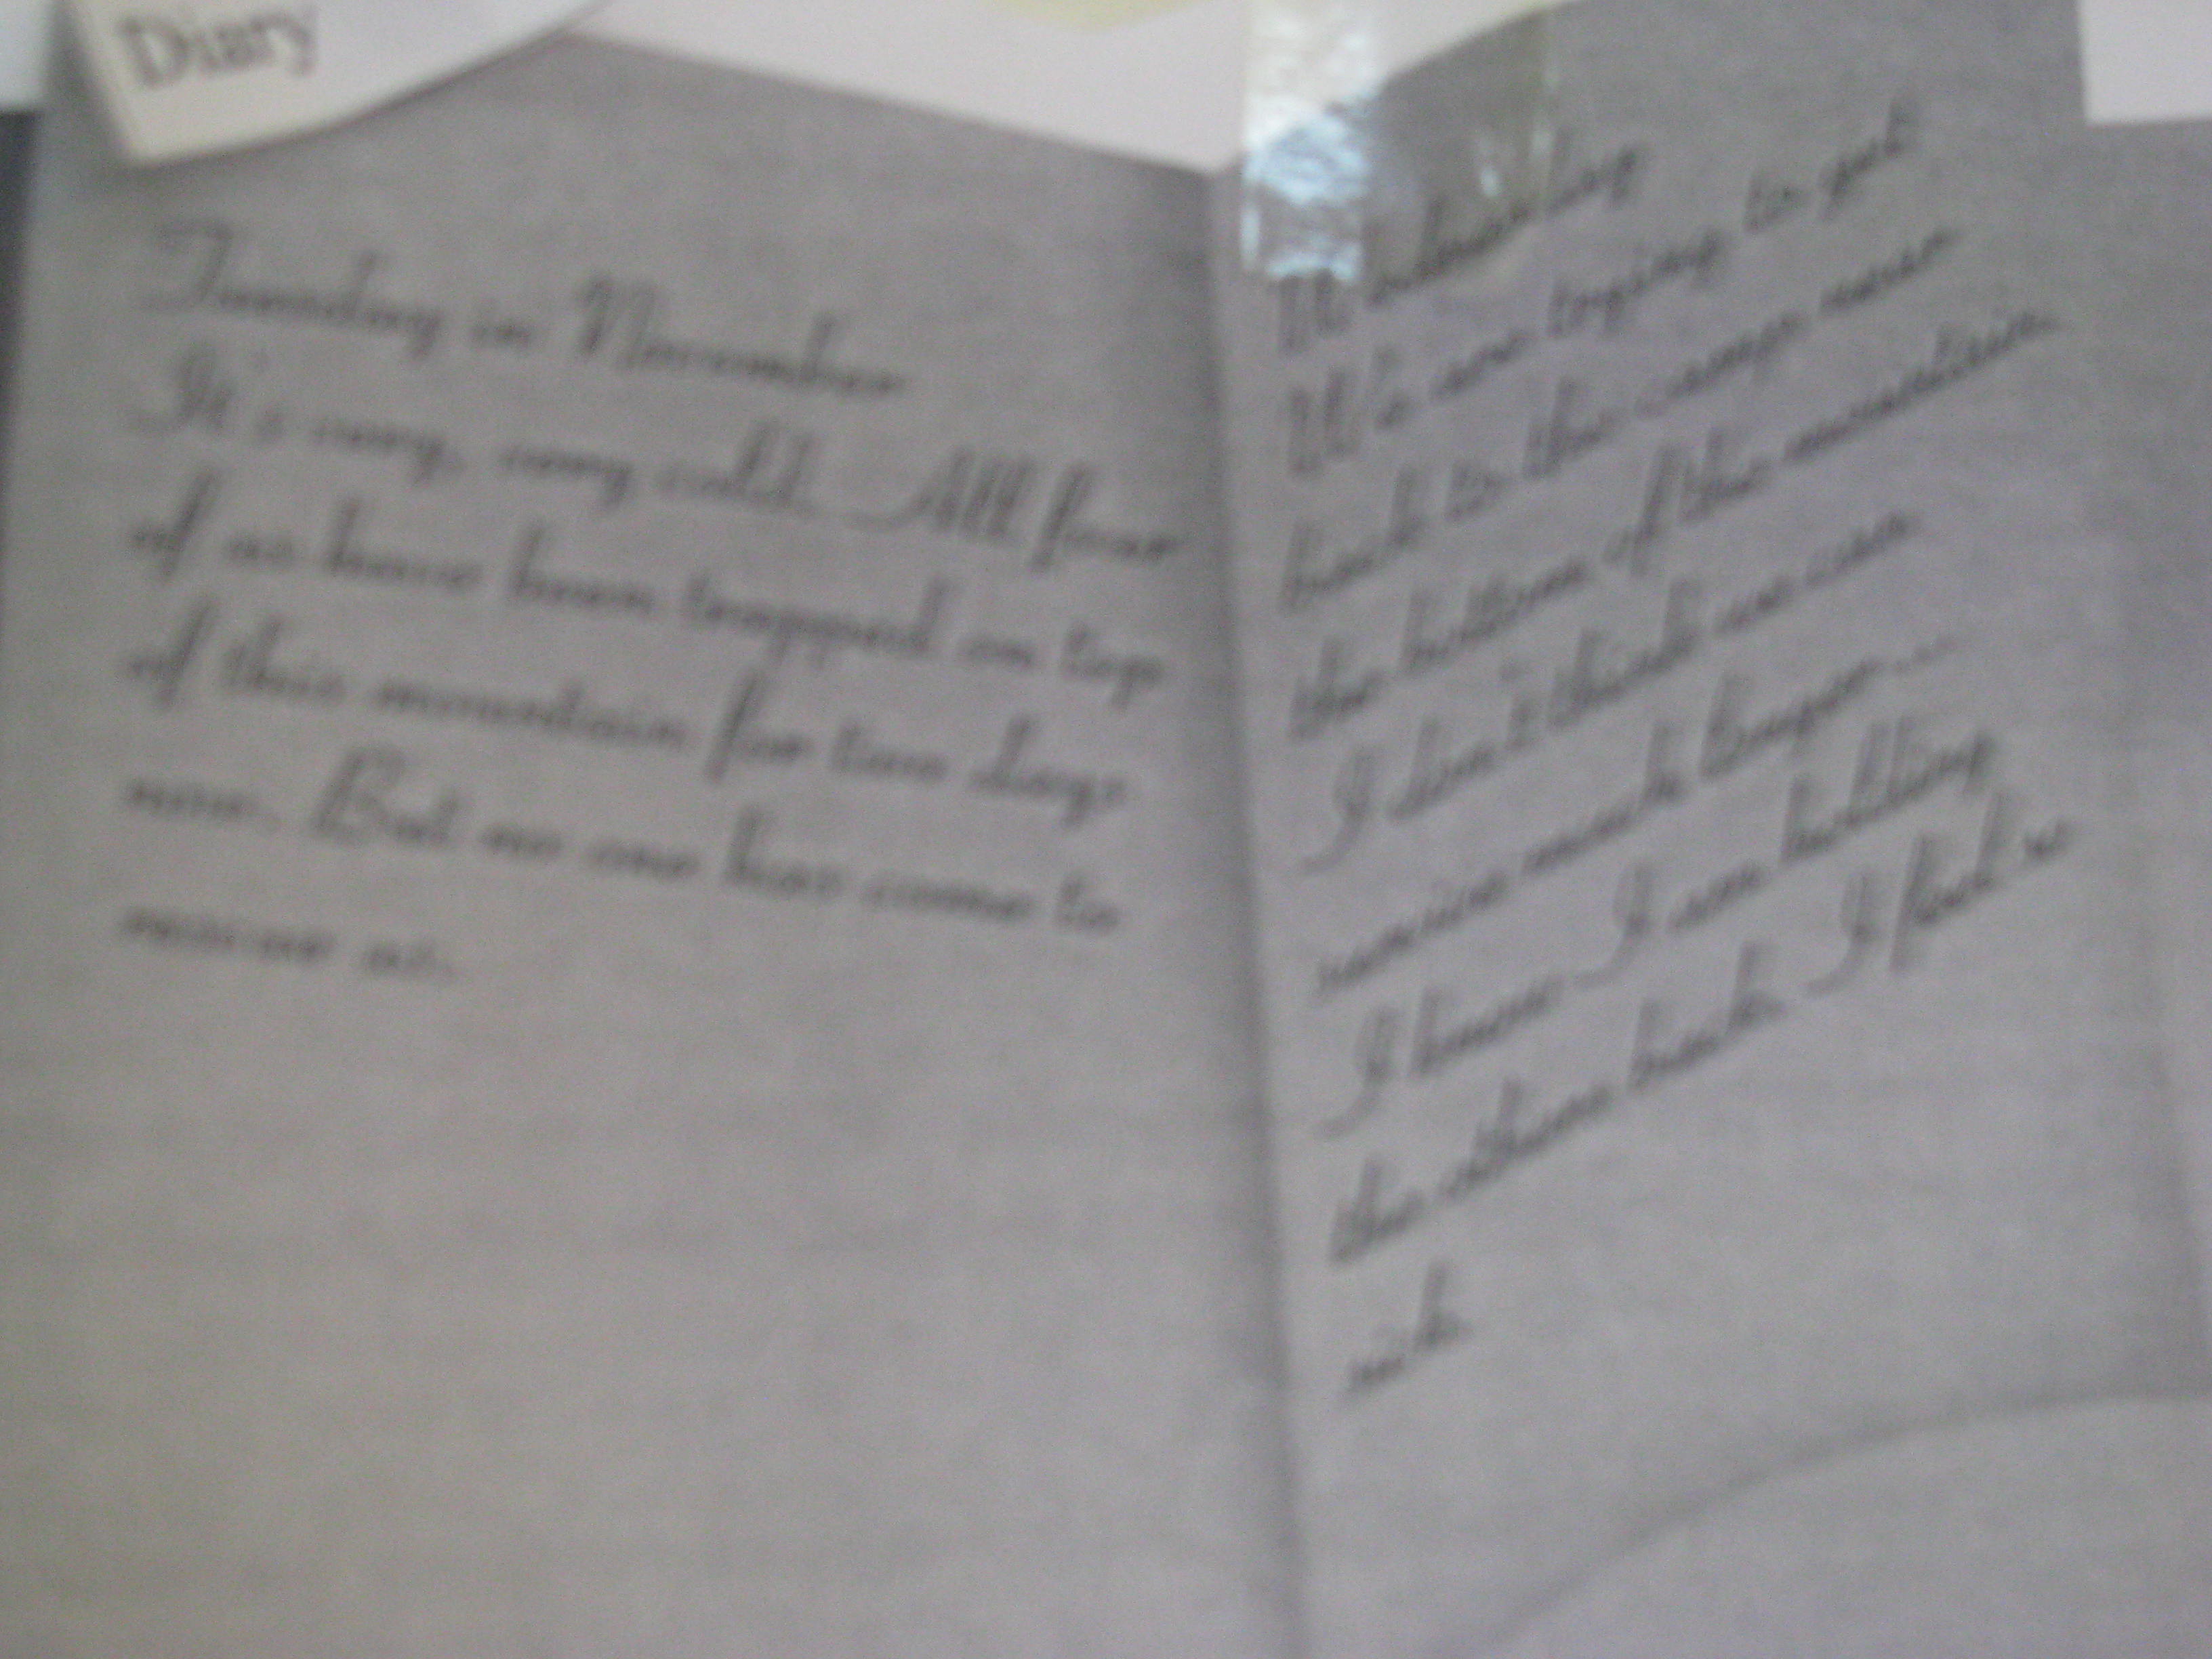 Diary
Tuesday in November
It's very, very cold. All four
of us have been trapped on top
of this mountain for two days
now. But no one has come to
rescue us.
Wednesday
We are trying to get
back to the camp near
the bottom of the mountain.
I don't think we can
survive much longer....
I know I am holding
the others back. I feel so
sick.